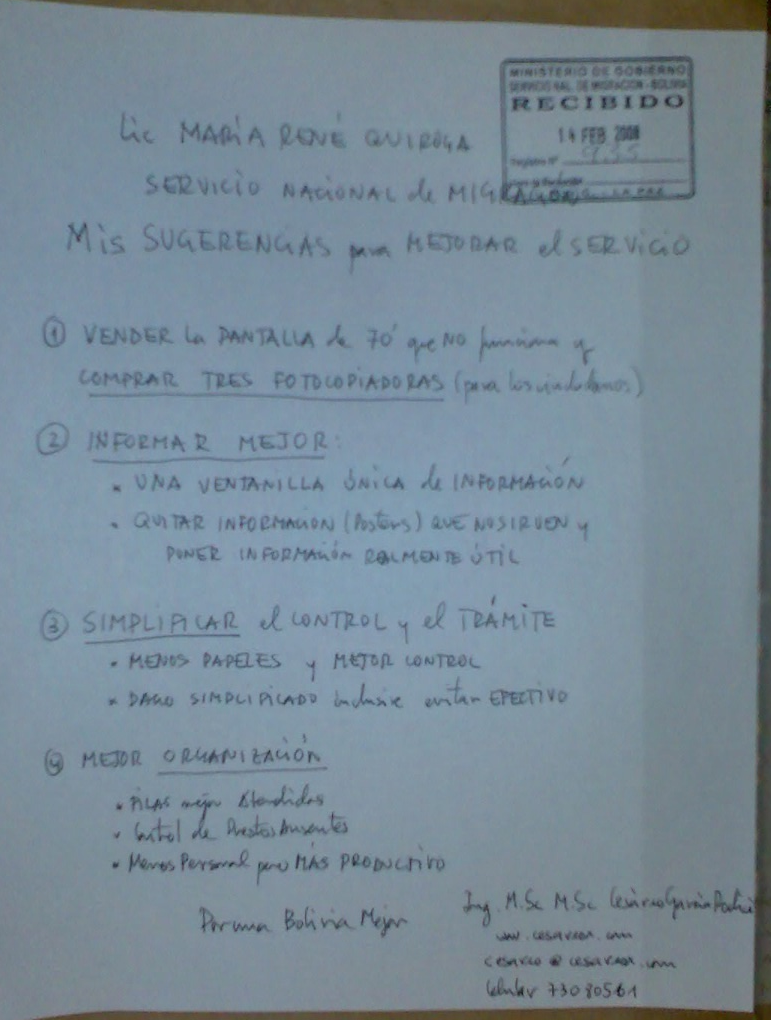 MINISTERIO DE GOBIERNO
SERVICIO NAL. DE MIGRACION - BOLIVIA
RECIBIDO
14 FEB 2008
9.35
LA PAZ
Lic MARÍA RENÉ QUIROGA
SERVICIO NACIONAL de MIGRACIÓN
Mis SUGERENCIAS para MEJORAR el SERVICIO
① VENDER la PANTALLA de 70' que NO funciona y
COMPRAR TRES FOTOCOPIADORAS (para los ciudadanos)
② INFORMAR MEJOR:
• UNA VENTANILLA ÚNICA de INFORMACIÓN
• QUITAR INFORMACIÓN (Posters) QUE NO SIRVEN y
PONER INFORMACIÓN REALMENTE ÚTIL
③ SIMPLIFICAR el CONTROL y el TRÁMITE
• MENOS PAPELES y MEJOR CONTROL
• PAGO SIMPLIFICADO inclusive evitar EFECTIVO
④ MEJOR ORGANIZACIÓN
• FILAS mejor Atendidas
• Control de Puestos Ausentes
• Menos Personal pero MÁS PRODUCTIVO
Por una Bolivia Mejor
Ing. M.Sc M.Sc Cesáreo García
Celular 73080561